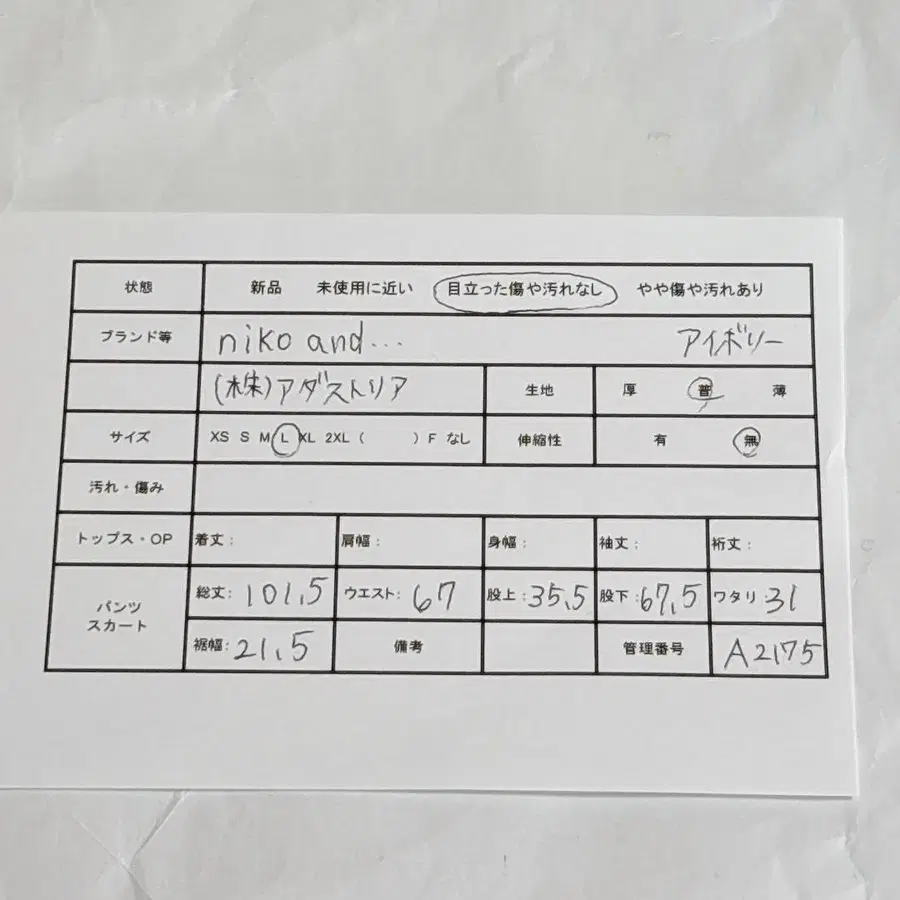 状態 新品 未使用に近い 目立った傷や汚れなし やや傷や汚れあり
ブランド等 niko and... アイボリー
(株)アダストリア 生地 厚 普 薄
サイズ XS S M L XL 2XL ( ) F なし 伸縮性 有 無
汚れ・傷み
トップス・OP 着丈: 肩幅: 身幅: 袖丈: 裄丈:
パンツ スカート 総丈: 101.5 ウエスト: 67 股上: 35.5 股下: 67.5 ワタリ: 31
裾幅: 21.5 備考 管理番号 A2175